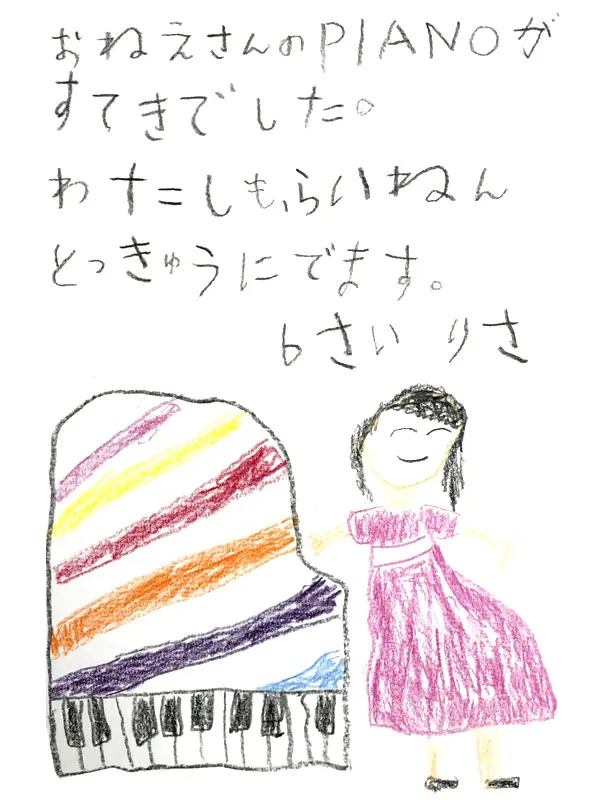 おねえさんのPIANOが
すてきでした。
わたしも、らいねん
とっきゅうにでます。
6さい りさ